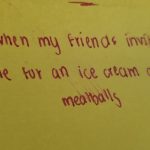 when my friends invi
e for an ice cream
meatballs